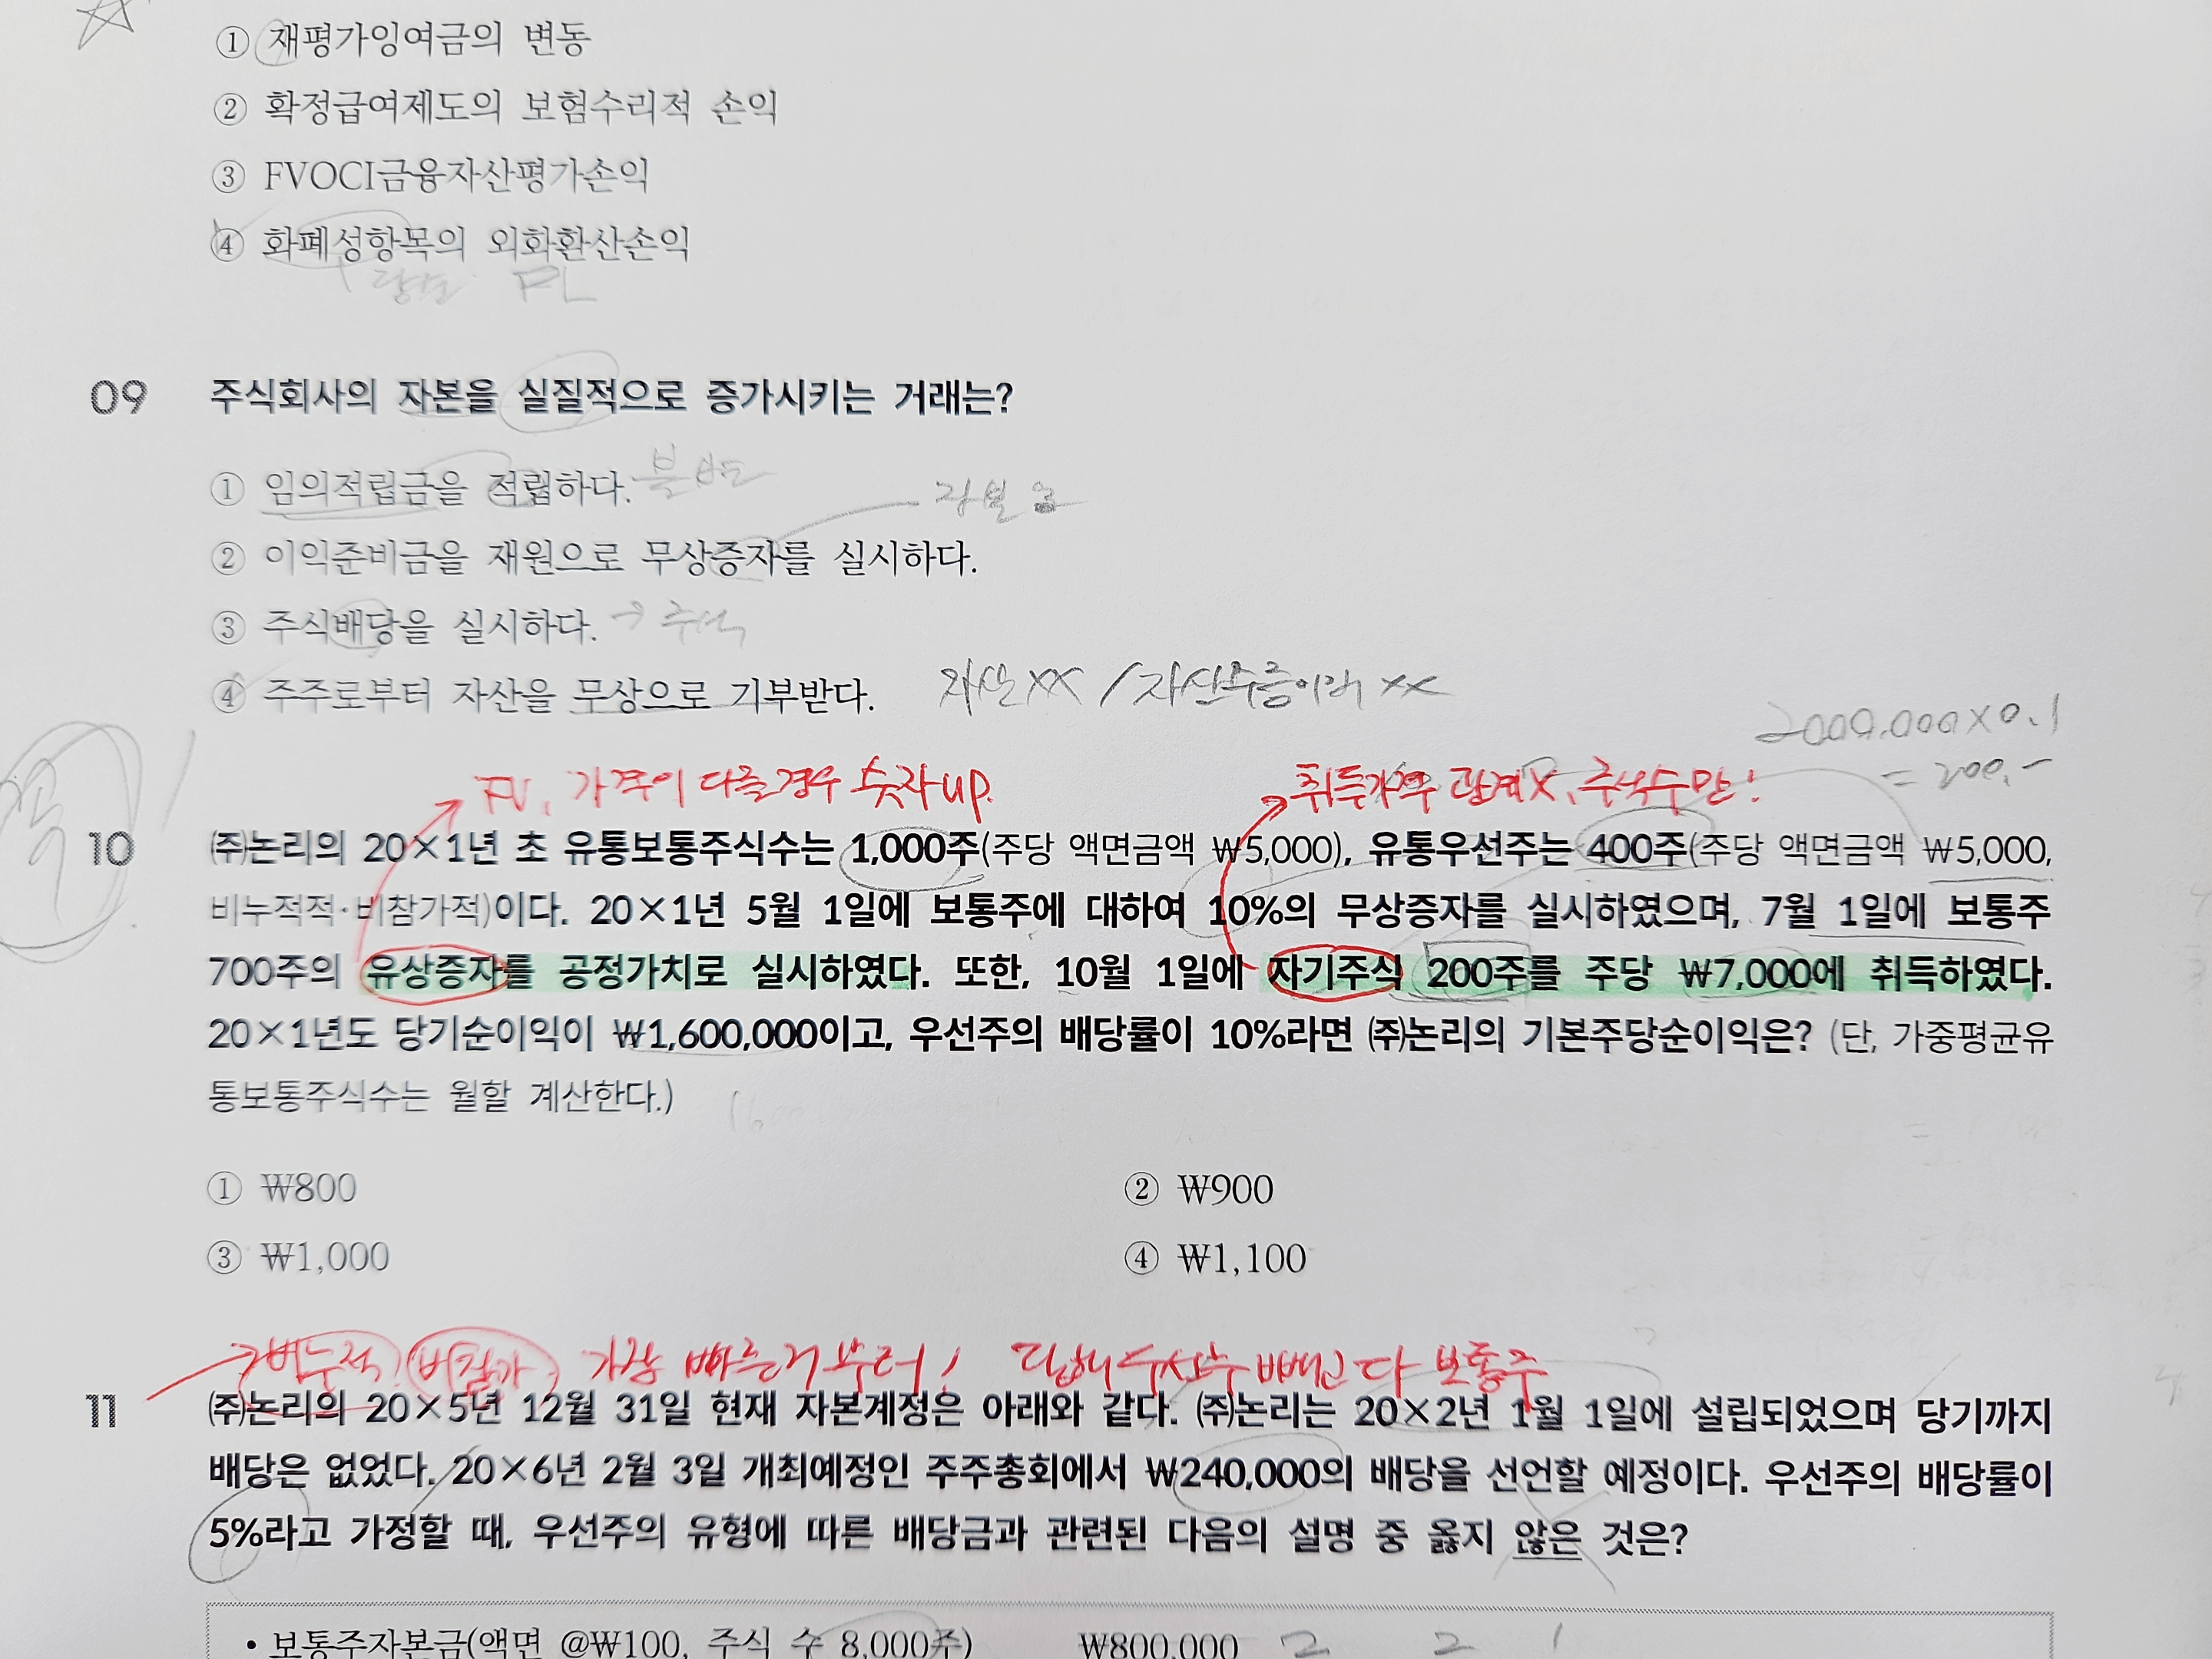 ① 재평가잉여금의 변동
② 확정급여제도의 보험수리적 손익
③ FVOCI금융자산평가손익
④ 화폐성항목의 외화환산손익
PL
09 주식회사의 자본을 실질적으로 증가시키는 거래는?
① 임의적립금을 적립하다. 불변
② 이익준비금을 재원으로 무상증자를 실시하다.
③ 주식배당을 실시하다. → 주식
④ 주주로부터 자산을 무상으로 기부받다. 자산 xx / 자산수증이익 xx
2000,000×0.1
= 200,-
FV, 가격이 다를경우 숫자 up. 취득가액 관계X, 주식수만!
10 ㈜논리의 20×1년 초 유통보통주식수는 1,000주(주당 액면금액 ₩5,000), 유통우선주는 400주(주당 액면금액 ₩5,000,
비누적적·비참가적)이다. 20×1년 5월 1일에 보통주에 대하여 10%의 무상증자를 실시하였으며, 7월 1일에 보통주
700주의 유상증자를 공정가치로 실시하였다. 또한, 10월 1일에 자기주식 200주를 주당 ₩7,000에 취득하였다.
20×1년도 당기순이익이 ₩1,600,000이고, 우선주의 배당률이 10%라면 ㈜논리의 기본주당순이익은? (단, 가중평균유
통보통주식수는 월할 계산한다.)
① ₩800 ② ₩900
③ ₩1,000 ④ ₩1,100
비누적, 비참가 가장 빠른거부터! 당해 우선주 빼고 다 보통주
11 ㈜논리의 20×5년 12월 31일 현재 자본계정은 아래와 같다. ㈜논리는 20×2년 1월 1일에 설립되었으며 당기까지
배당은 없었다. 20×6년 2월 3일 개최예정인 주주총회에서 ₩240,000의 배당을 선언할 예정이다. 우선주의 배당률이
5%라고 가정할 때, 우선주의 유형에 따른 배당금과 관련된 다음의 설명 중 옳지 않은 것은?
• 보통주자본금(액면 @₩100, 주식 수 8,000주) ₩800,000 2 2 1